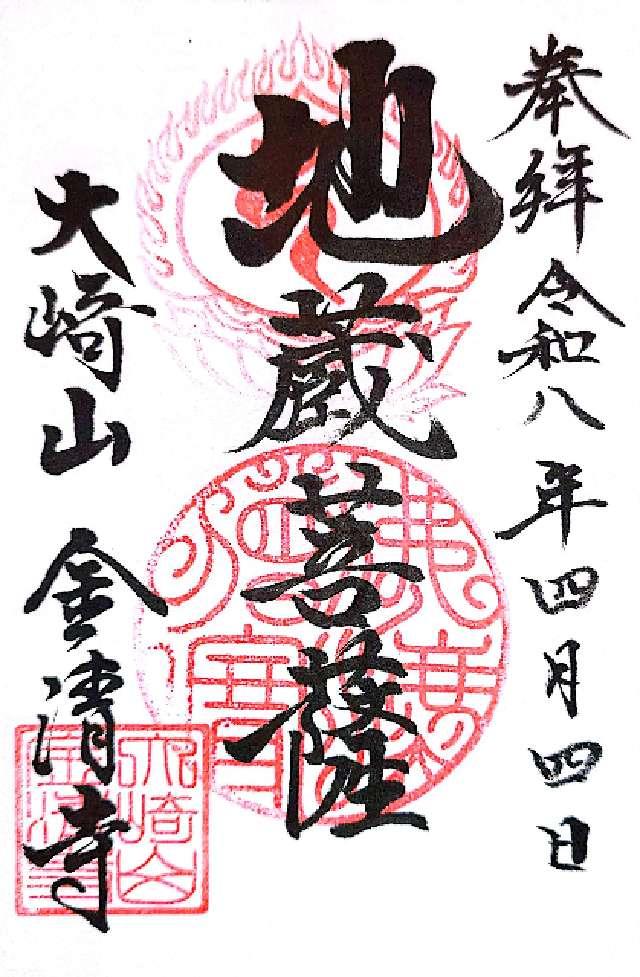 奉拝 令和八年四月四日
地蔵菩薩
大崎山 金清寺
大崎山
金清寺